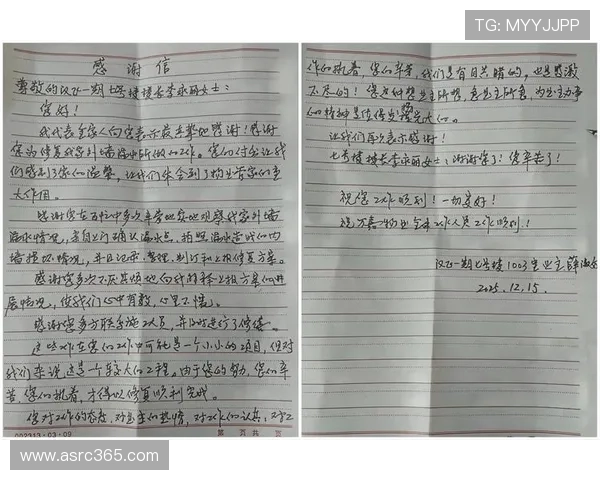 TG: MYYJJPP
感谢信
尊敬的汉飞一期七号楼楼长李永丽女士：
您好！
我代表全家人向您表示最真挚地感谢！感谢
您为修复我家外墙漏水所做的工作。您的付出让我
们感到了家的温馨，让我们体会到了物业管家的重
大作用。
感谢您在百忙中多次辛劳地实地观察我家外墙
漏水情况，亲自上门确认漏水点，拍照漏水造成的内
墙损坏情况，并且记录、整理，制订和上报修复方案。
感谢您多次不厌其烦地向我的上报方案的进
展情况，使我们心中有数，心里不慌。
感谢您多方联系施工人员，并及时进行了修缮。
这些工作在您的工作中可能是一个小小的项目，但对
我们来说这是一个较大的工程。由于您的努力、您的辛
苦、您的执着，才得以修复顺利完成。
您对工作的态度，对业主的热情，对工作的认真，对工
002313·03·09
第 页 共 页
作的执着，您的辛苦，我们是有目共睹的，也是感激
不尽的！您这种想业主所想，急业主所急，为业主办事
的精神是值得发扬光大的。
让我们再次表示感谢！
七号楼楼长李永丽女士，谢谢您了！您辛苦了！
祝您工作顺利！一切安好！
祝物业全体工作人员工作顺利！
汉飞一期七号楼1003室业主薛
2025.12.15.
www.asrc365.com